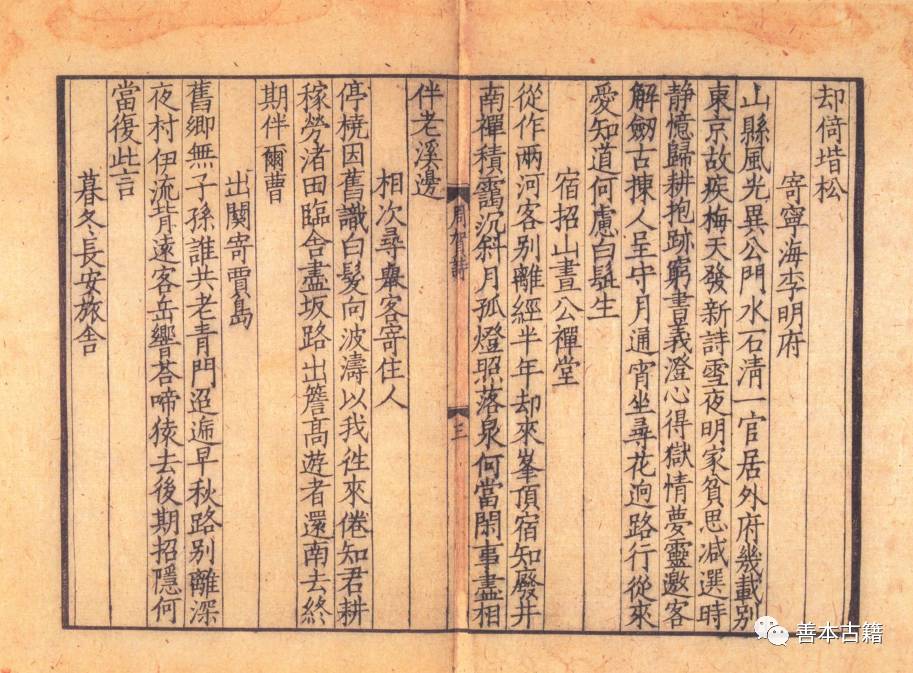 却倚堦松
寄寧海李明府
山縣風光異公門水石清一官居外府幾載別
東京故疾梅天發新詩雪夜明家貧思减選時
静憶歸耕抱跡窮書義澄心得獄情夢靈邀客
解劒古揀人呈守月通宵坐尋花逈路行從來
愛知道何慮白髭生
宿招山晝公禪堂
從作兩河客別離經半年却來峯頂宿知廢井
南禪積靄沉斜月孤燈照落泉何當閑事盡相
伴老溪邊
周賀詩
三
相次尋舉客寄住人
停橈因舊識白髮向波濤以我徃來倦知君耕
稼勞渚田臨舍盡坂路出簷髙遊者還南去終
期伴爾曹
出關寄賈島
舊鄉無子孫誰共老青門迢遞早秋路別離深
夜村伊流背遠客岳響荅啼猿去後期招隱何
當復此言
暮冬長安旅舍
善本古籍